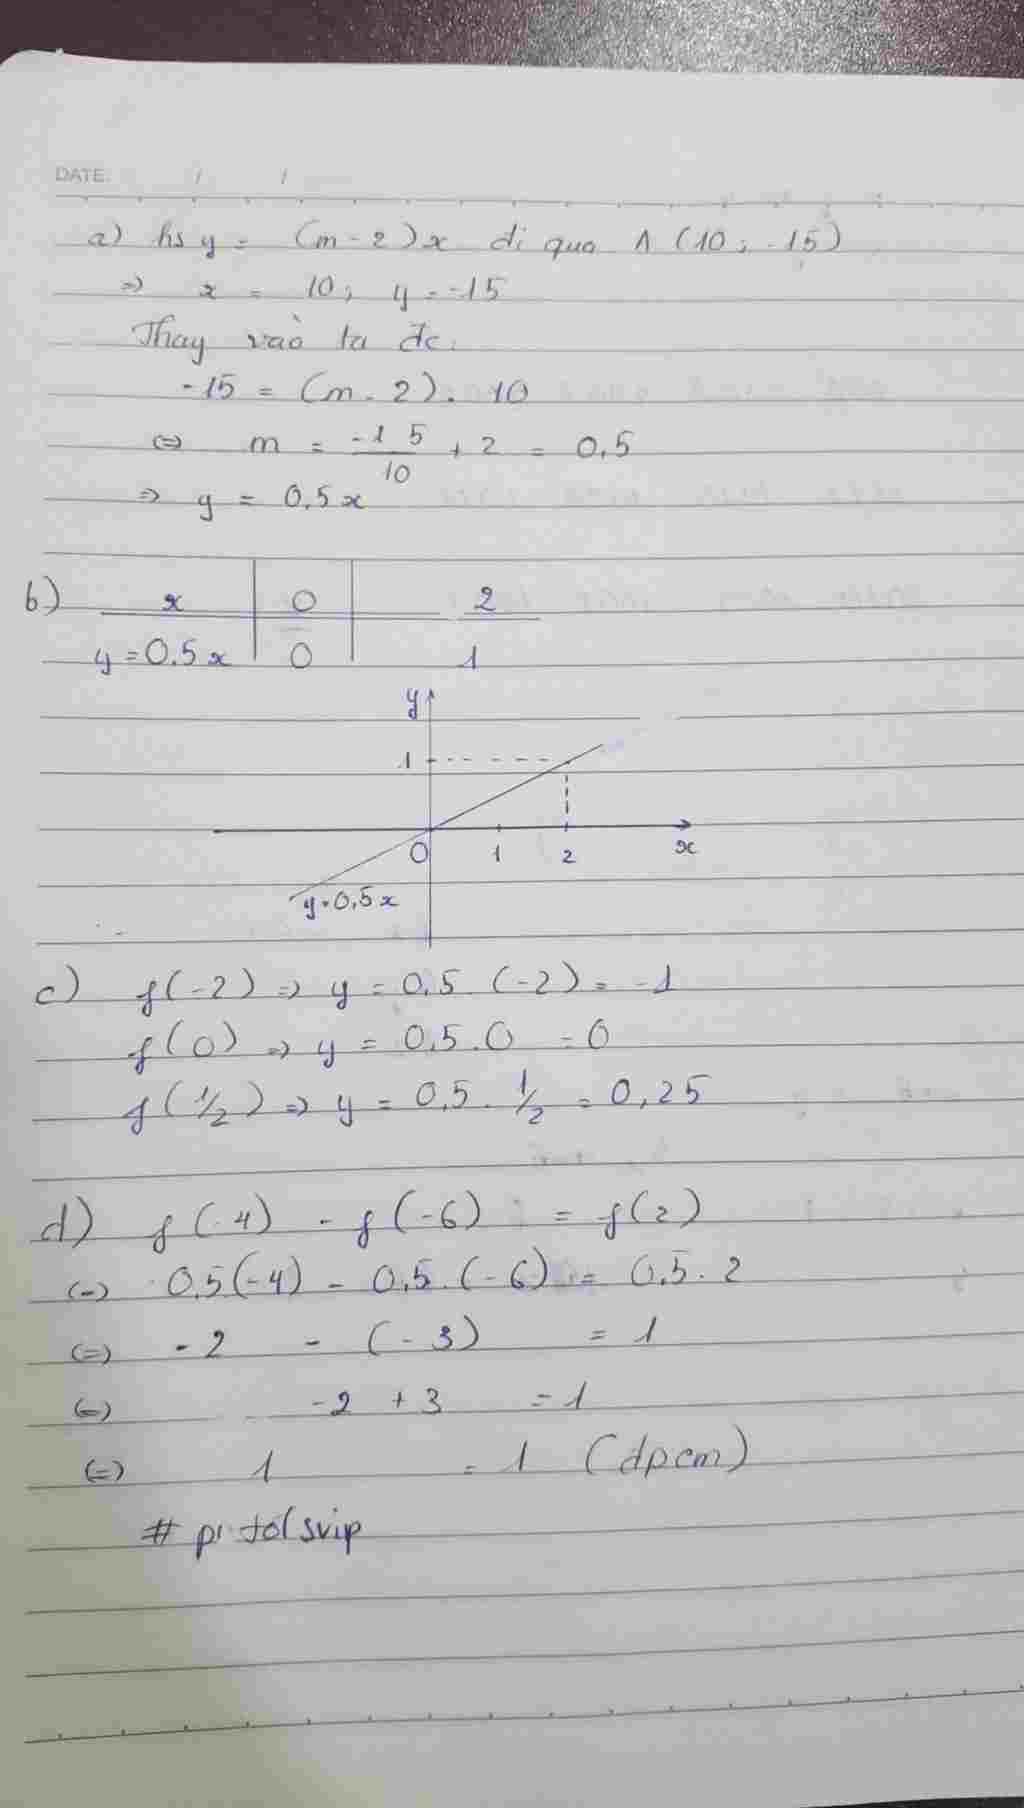 DATE / /
a) hs y = (m-2)x đi qua A (10; -15)
=> x = 10; y = -15
Thay vào ta đc:
-15 = (m-2). 10
<=> m = -15/10 + 2 = 0,5
=> y = 0,5x
b) x | 0 | 2
y=0,5x | 0 | 1
y
1
O 1 2 x
y=0,5x
c) f(-2) => y = 0,5 (-2) = -1
f(0) => y = 0,5.0 = 0
f(1/2) => y = 0,5. 1/2 = 0,25
d) f(-4) - f(-6) = f(2)
(=) 0,5(-4) - 0,5.(-6) = 0,5.2
(=) -2 - (-3) = 1
(=) -2 + 3 = 1
(=) 1 = 1 (dpcm)
# pitolsvip